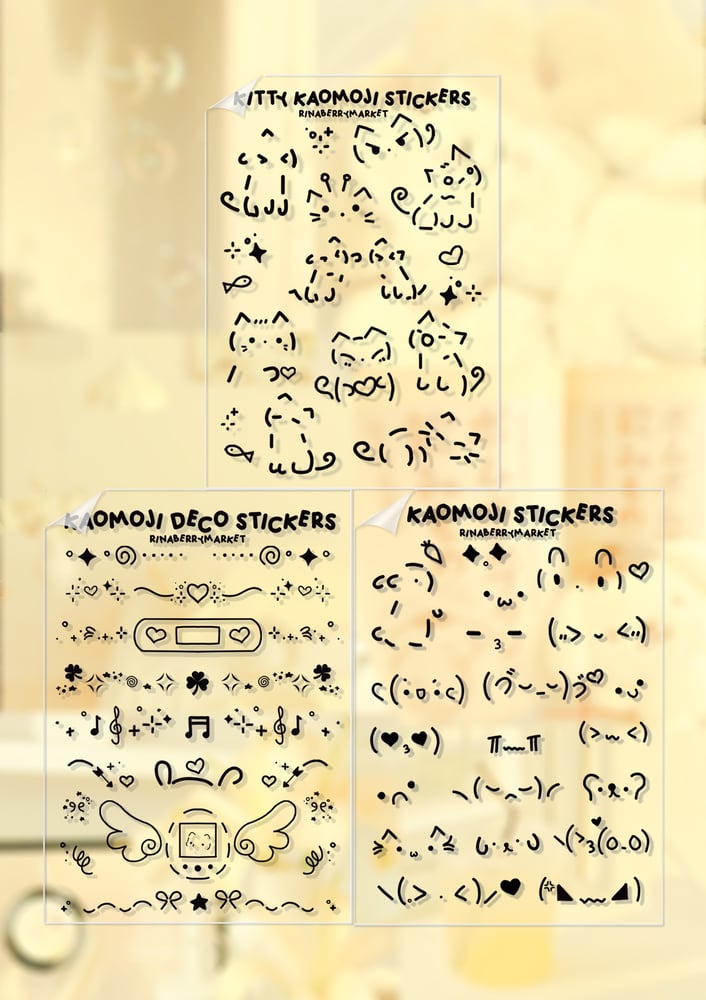 KITTY KAOMOJI STICKERS
RINABERRYMARKET
KAOMOJI DECO STICKERS
RINABERRYMARKET
KAOMOJI STICKERS
RINABERRYMARKET